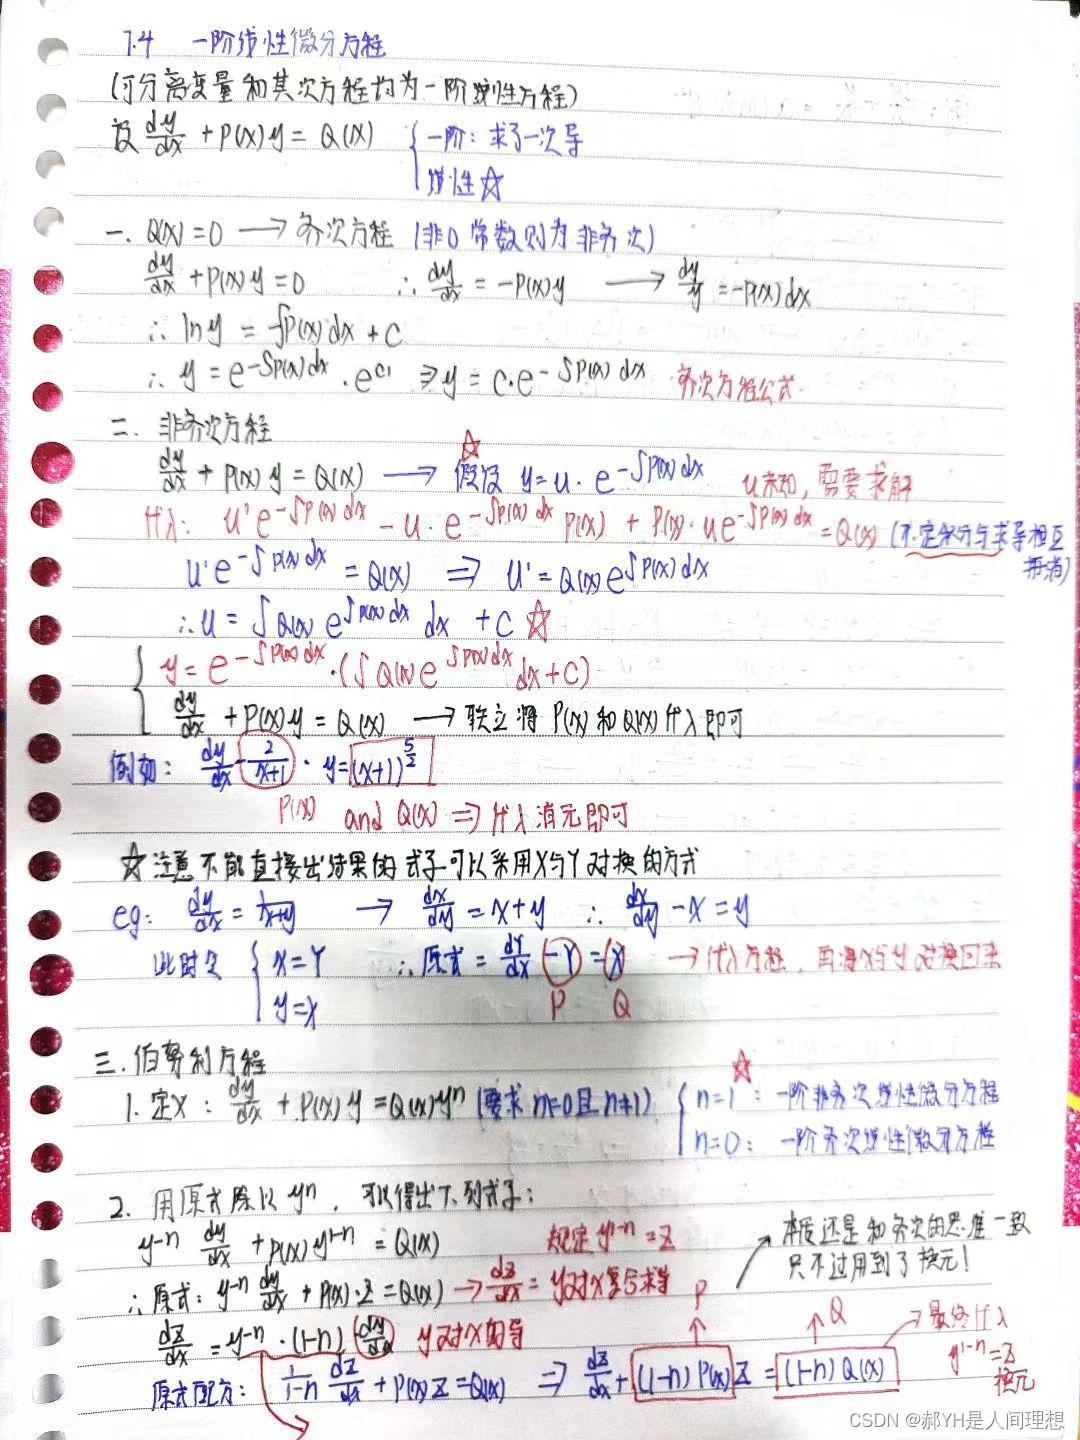 7.4 一阶线性微分方程
(可分离变量和其次方程均为一阶线性方程)
设 dy/dx + P(x)y = Q(x) { 一阶: 求了一次导
线性☆
一. Q(x)=0 → 齐次方程 (非0常数则为非齐次)
dy/dx + P(x)y = 0 ∴ dy/dx = -P(x)y → dy/y = -P(x)dx
∴ lny = -∫P(x)dx + C
∴ y = e^{-∫P(x)dx} · e^{C1} ⇒ y = C·e^{-∫P(x)dx} 齐次方程公式.
二. 非齐次方程
dy/dx + P(x)y = Q(x) → ☆假设 y = u·e^{-∫P(x)dx} u未知, 需要求解
代入: u'e^{-∫P(x)dx} - u·e^{-∫P(x)dx} P(x) + P(x)·ue^{-∫P(x)dx} = Q(x) (不定积分与求导相互
抵消)
u'e^{-∫P(x)dx} = Q(x) ⇒ u' = Q(x)e^{∫P(x)dx}
∴ u = ∫Q(x)e^{∫P(x)dx} dx + C ☆
{ y = e^{-∫P(x)dx}·(∫Q(x)e^{∫P(x)dx}dx+C)
dy/dx + P(x)y = Q(x) → 联立将 P(x)和Q(x)代入即可
例如: dy/dx - 2/(x+1) · y = (x+1)^{5/2}
P(x) and Q(x) ⇒ 代入消元即可
☆注意不能直接出结果的式子可以采用X与Y对换的方式
eg: dy/dx = 1/(x+y) → dx/dy = x+y ∴ dx/dy - x = y
此时令 { x=Y ∴ 原式 = dY/dX -Y = X → 代入方程, 再将X与Y对换回来
y=X P Q
三. 伯努利方程
1. 定义: dy/dx + P(x)y = Q(x)y^n (要求 n≠0且n≠1) { ☆ n=1: 一阶非齐次线性微分方程
n=0: 一阶齐次线性微分方程
2. 用原式除以 y^n, 可以得出下列式子:
y^{-n} dy/dx + P(x)y^{1-n} = Q(x) 规定 y^{1-n} = z 本质还是和齐次的思维一致
只不过用到了换元!
∴ 原式: y^{-n} dy/dx + P(x)·z = Q(x) → dz/dx = y对x复合求导 P Q
dz/dx = y^{-n}·(1-n) dy/dx y对x的导 最终代入
y^{1-n} = z
换元
原式配方: 1/(1-n) dz/dx + P(x)z = Q(x) ⇒ dz/dx + (1-n)P(x)z = (1-n)Q(x)
CSDN @郝YH是人间理想